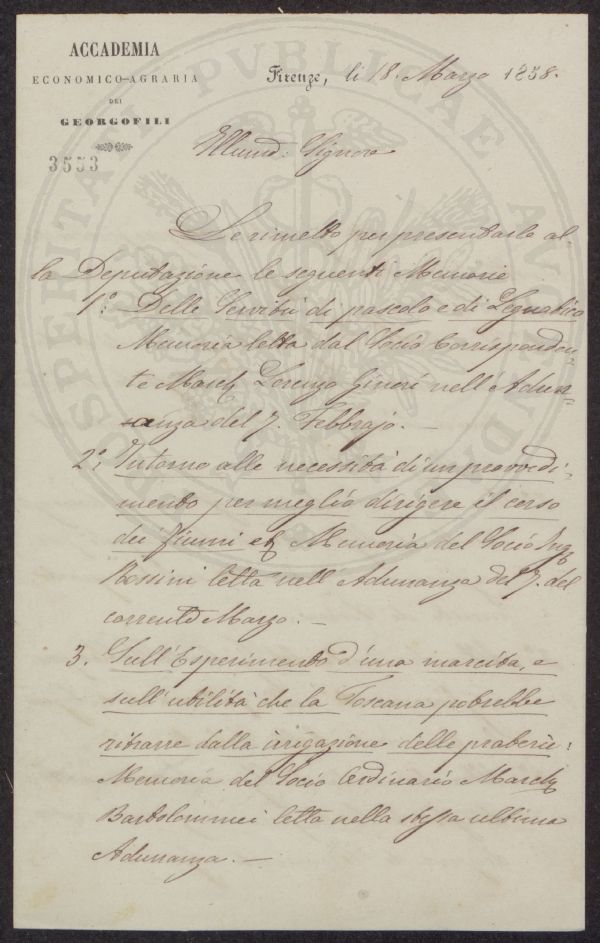 ACCADEMIA
ECONOMICO-AGRARIA
DEI
GEORGOFILI
3553
Firenze, li 18. Marzo 1858.
Illmo: Signore
Le rimetto per presentarlo al-
la Deputazione le seguenti Memorie
1°: Delle Servitù di pascolo e di Legnatico
Memoria letta dal Socio Corrisponden-
te March. Lorenzo Ginori nell'Adun-
anza del 7. Febbrajo. —
2°: Intorno alle necessità di un provvedi-
mento per meglio dirigere il corso
dei fiumi Memoria del Socio Ing.
Rossini letta nell'Adunanza del 7. del
corrente Marzo. —
3. Sull'Esperimento d'una marcita, e
sull'utilità che la Toscana potrebbe
ritrarre dalla irrigazione delle praterie:
Memoria del Socio Ordinario March.
Bartolommei letta nella stessa ultima
Adunanza. —
PROSPERITATI PUBLICAE AUGENDAE